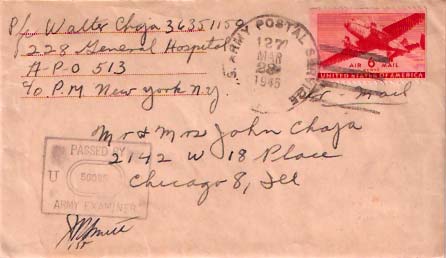 P/- Walter Chaja 36351150
228 General Hospital
A-P-O 513
c/o P.M New York N.Y.
U.S. ARMY POSTAL SERVICE
127
MAR
28
1945
AIR 6¢ MAIL
UNITED STATES OF AMERICA
Air Mail
Mr & Mrs John Chaja
2142 W 18 Place
Chicago 8, Ill
PASSED BY
U
ARMY EXAMINER